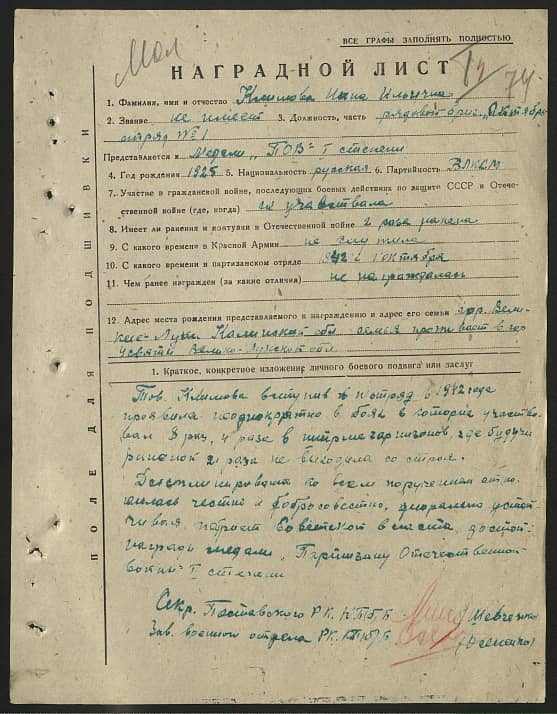 Мол
ВСЕ ГРАФЫ ЗАПОЛНЯТЬ ПОЛНОСТЬЮ
74
НАГРАДНОЙ ЛИСТ
1. Фамилия, имя и отчество Климова Нина Ильинична
2. Звание не имеет 3. Должность, часть рядовой бриг. „Октября
отряд № 1
Представляется к медали „ПОВ" I степени
4. Год рождения 1925 5. Национальность русская 6. Партийность ВЛКСМ
7. Участие в гражданской войне, последующих боевых действиях по защите СССР и Отече-
ственной войне (где, когда) не участвовала
8. Имеет ли ранения и контузии в Отечественной войне 2 раза ранена
9. С какого времени в Красной Армии не служила
10. С какого времени в партизанском отряде 1942 с октября
11. Чем ранее награжден (за какие отличия) не награждалась
12. Адрес места рождения представляемого к награждению и адрес его семьи гор. Вели-
кие-Луки Калинской обл семья проживает в гор
Усвяти Велико-Лукской обл.
1. Краткое, конкретное изложение личного боевого подвига или заслуг
Тов. Климова вступив в п/отряд в 1942 года
проявила неоднократно в боях в которых участво-
вал 8 раз, 4 раза в гарнизонов, где будучи
2 раза не выходила со строя.
Дисциплинирована ко всем порученным отно-
силась честно и добросовестно, морально устой-
чивая патриот Советской власти, достой
награды медали „Партизану Отечественной
войны" I степени
Секр. Поставского РК КП/б/Б (Шевченко
Зав. военного отдела РК КП/б/Б
ПОЛЕ ДЛЯ ПОДШИВКИ